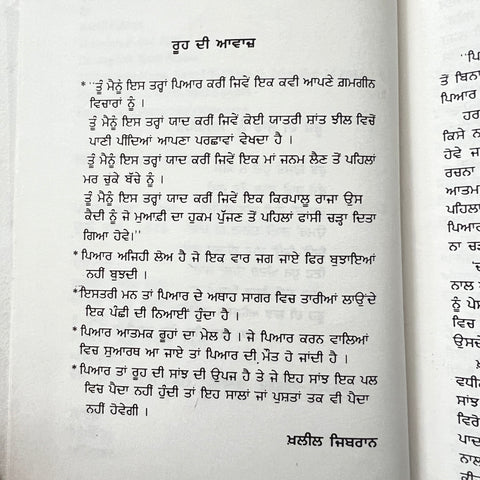 ਰੂਹ ਦੀ ਆਵਾਜ਼
* "ਤੂੰ ਮੈਨੂੰ ਇਸ ਤਰ੍ਹਾਂ ਪਿਆਰ ਕਰੀਂ ਜਿਵੇਂ ਇਕ ਕਵੀ ਆਪਣੇ ਗ਼ਮਗੀਨ
ਵਿਚਾਰਾਂ ਨੂੰ ।
ਤੂੰ ਮੈਨੂੰ ਇਸ ਤਰ੍ਹਾਂ ਯਾਦ ਕਰੀਂ ਜਿਵੇਂ ਕੋਈ ਯਾਤਰੀ ਸ਼ਾਂਤ ਝੀਲ ਵਿਚੋਂ
ਪਾਣੀ ਪੀਂਦਿਆਂ ਆਪਣਾ ਪਰਛਾਵਾਂ ਵੇਖਦਾ ਹੈ ।
ਤੂੰ ਮੈਨੂੰ ਇਸ ਤਰ੍ਹਾਂ ਯਾਦ ਕਰੀਂ ਜਿਵੇਂ ਇਕ ਮਾਂ ਜਨਮ ਲੈਣ ਤੋਂ ਪਹਿਲਾਂ
ਮਰ ਚੁਕੇ ਬੱਚੇ ਨੂੰ ।
ਤੂੰ ਮੈਨੂੰ ਇਸ ਤਰ੍ਹਾਂ ਯਾਦ ਕਰੀਂ ਜਿਵੇਂ ਇਕ ਕਿਰਪਾਲੂ ਰਾਜਾ ਉਸ
ਕੈਦੀ ਨੂੰ ਜੋ ਮੁਆਫ਼ੀ ਦਾ ਹੁਕਮ ਪੁੱਜਣ ਤੋਂ ਪਹਿਲਾਂ ਫਾਂਸੀ ਚੜ੍ਹਾ ਦਿਤਾ
ਗਿਆ ਹੋਵੇ।"
* ਪਿਆਰ ਅਜਿਹੀ ਲੋਅ ਹੈ ਜੋ ਇਕ ਵਾਰ ਜਗ ਜਾਏ ਫਿਰ ਬੁਝਾਇਆਂ
ਨਹੀਂ ਬੁਝਦੀ ।
* ਇਸਤਰੀ ਮਨ ਤਾਂ ਪਿਆਰ ਦੇ ਅਥਾਹ ਸਾਗਰ ਵਿਚ ਤਾਰੀਆਂ ਲਾਉਂਦੇ
ਇਕ ਪੰਛੀ ਦੀ ਨਿਆਈਂ ਹੁੰਦਾ ਹੈ ।
* ਪਿਆਰ ਆਤਮਕ ਰੂਹਾਂ ਦਾ ਮੇਲ ਹੈ । ਜੇ ਪਿਆਰ ਕਰਨ ਵਾਲਿਆਂ
ਵਿਚ ਸੁਆਰਥ ਆ ਜਾਏ ਤਾਂ ਪਿਆਰ ਦੀ ਮੌਤ ਹੋ ਜਾਂਦੀ ਹੈ ।
* ਪਿਆਰ ਤਾਂ ਰੂਹ ਦੀ ਸਾਂਝ ਦੀ ਉਪਜ ਹੈ ਤੇ ਜੇ ਇਹ ਸਾਂਝ ਇਕ ਪਲ
ਵਿਚ ਪੈਦਾ ਨਹੀਂ ਹੁੰਦੀ ਤਾਂ ਇਹ ਸਾਲਾਂ ਜਾਂ ਪੁਸ਼ਤਾਂ ਤਕ ਵੀ ਪੈਦਾ
ਨਹੀਂ ਹੋਵੇਗੀ ।
ਖ਼ਲੀਲ ਜਿਬਰਾਨ
ਤੋਂ ਬਿਨਾ
ਪਿਆਰ
ਹਰ
ਕਿਸੇ ਨ
ਹੋਵੇ ਜ
ਰਚਨਾ
ਆਤਮ
ਪਹਿਲਾ
ਪਿਆਰ
ਨਾ ਚੜ
ਨਾਲ ਸ
ਨੂੰ ਪੇਸ
ਵਿਚ
ਉਸਦੇ
ਵਧੀਨ
ਸਾਂਝ
ਵਿਰੋ
ਪਾਦ
ਨਾਲ